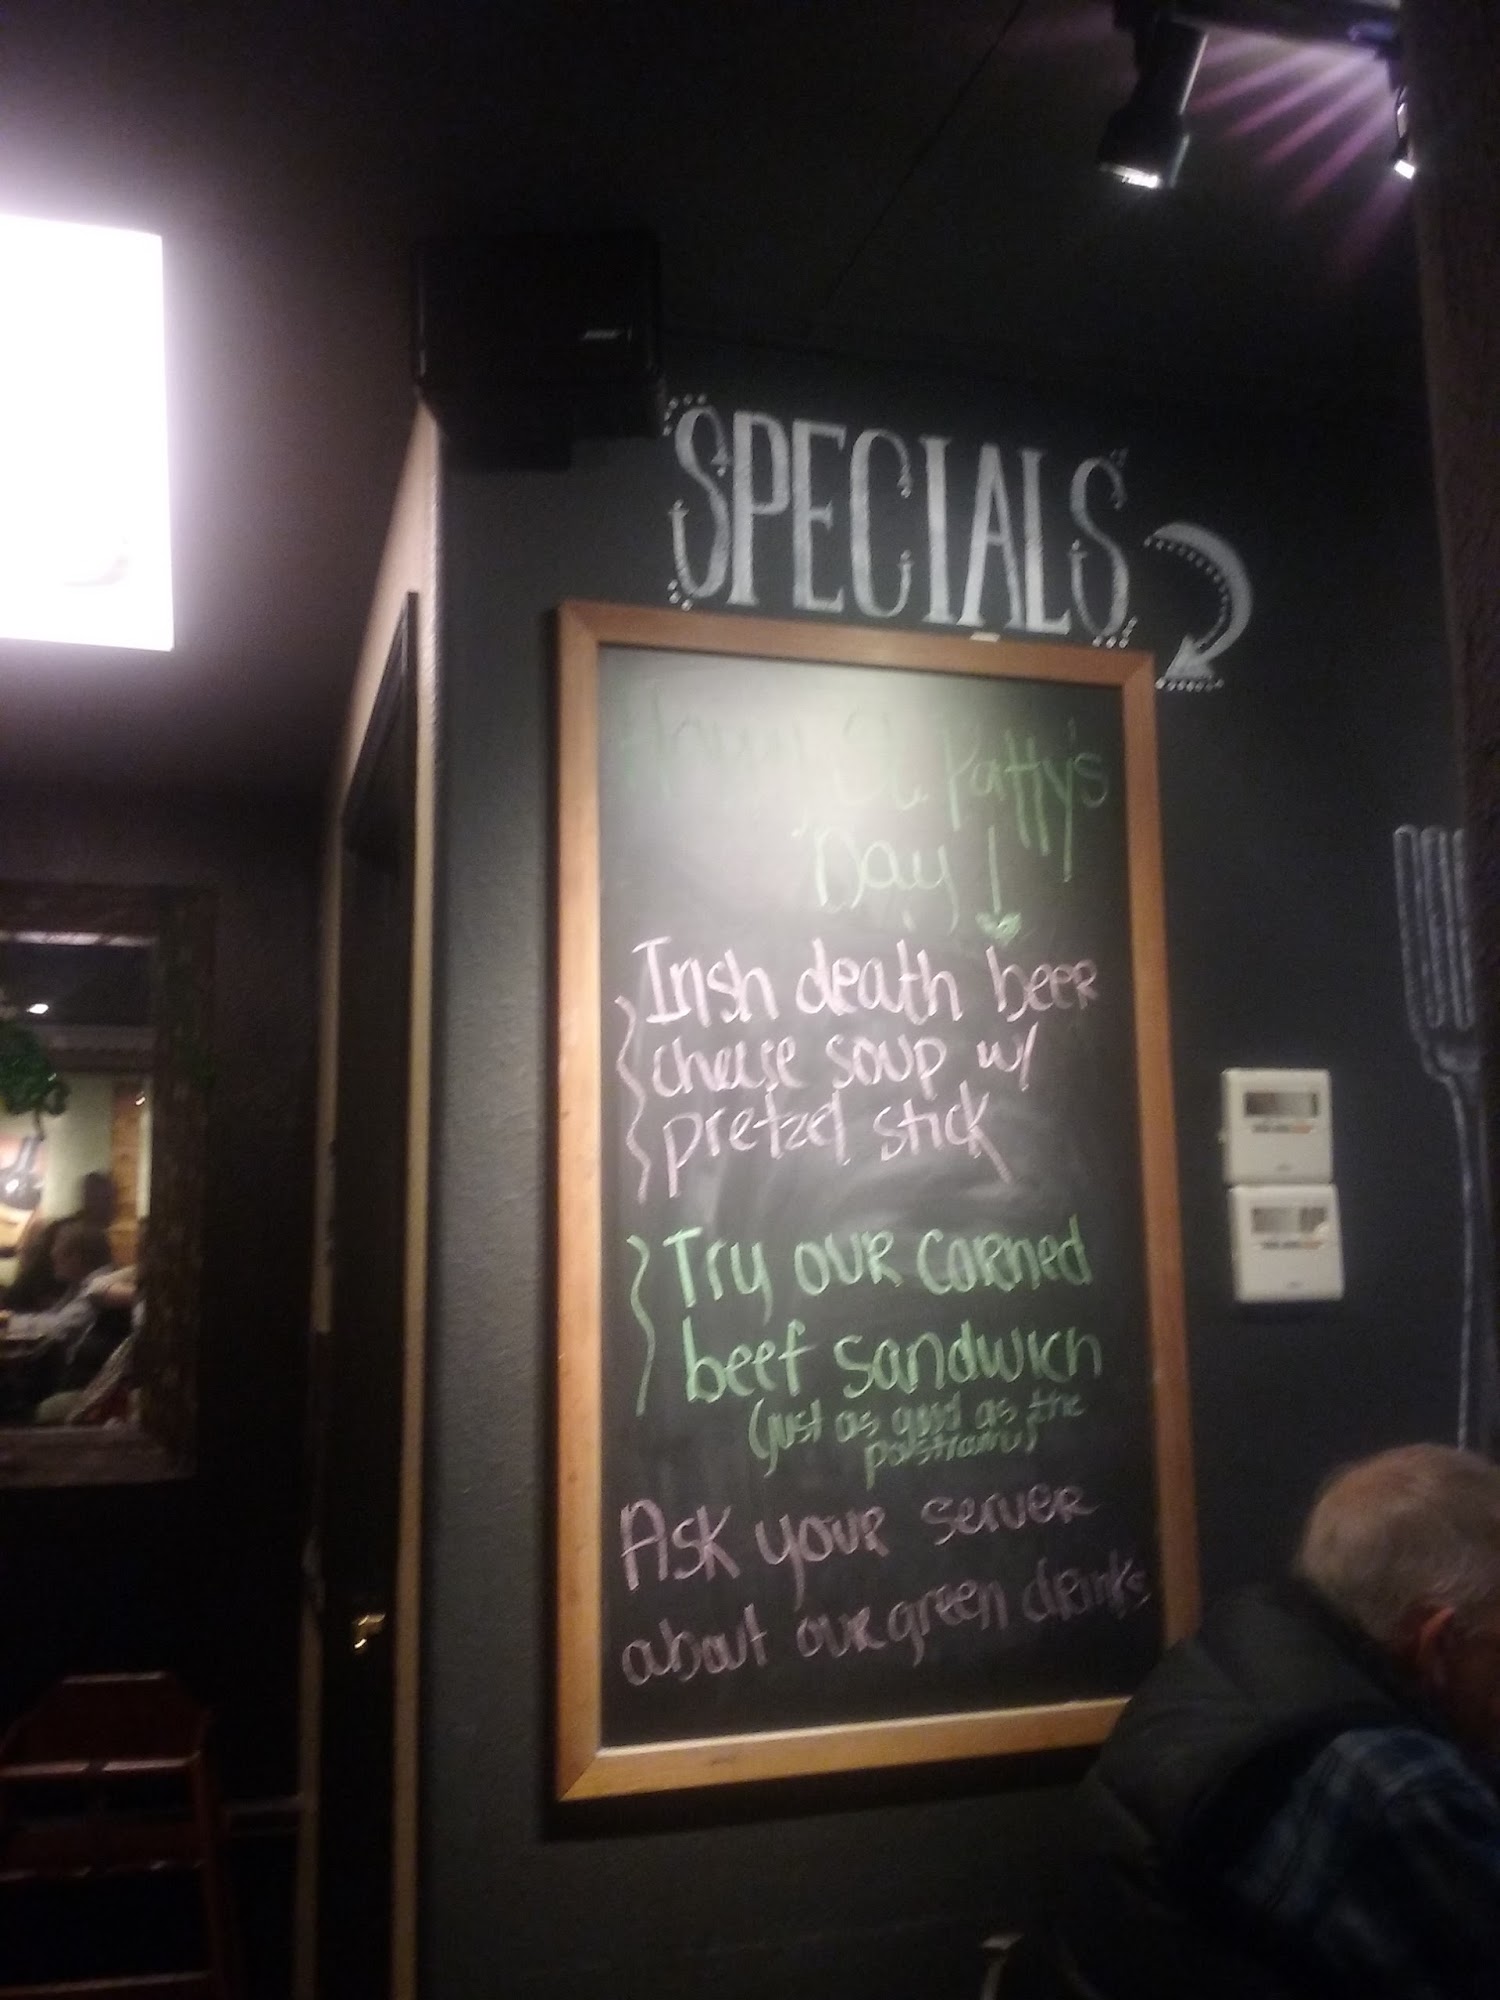 SPECIALS
Happy St. Patty's
Day!
Irish death beer
cheese soup w/
pretzel stick
Try our corned
beef sandwich
(just as good as the
Ask your server
about our green drinks